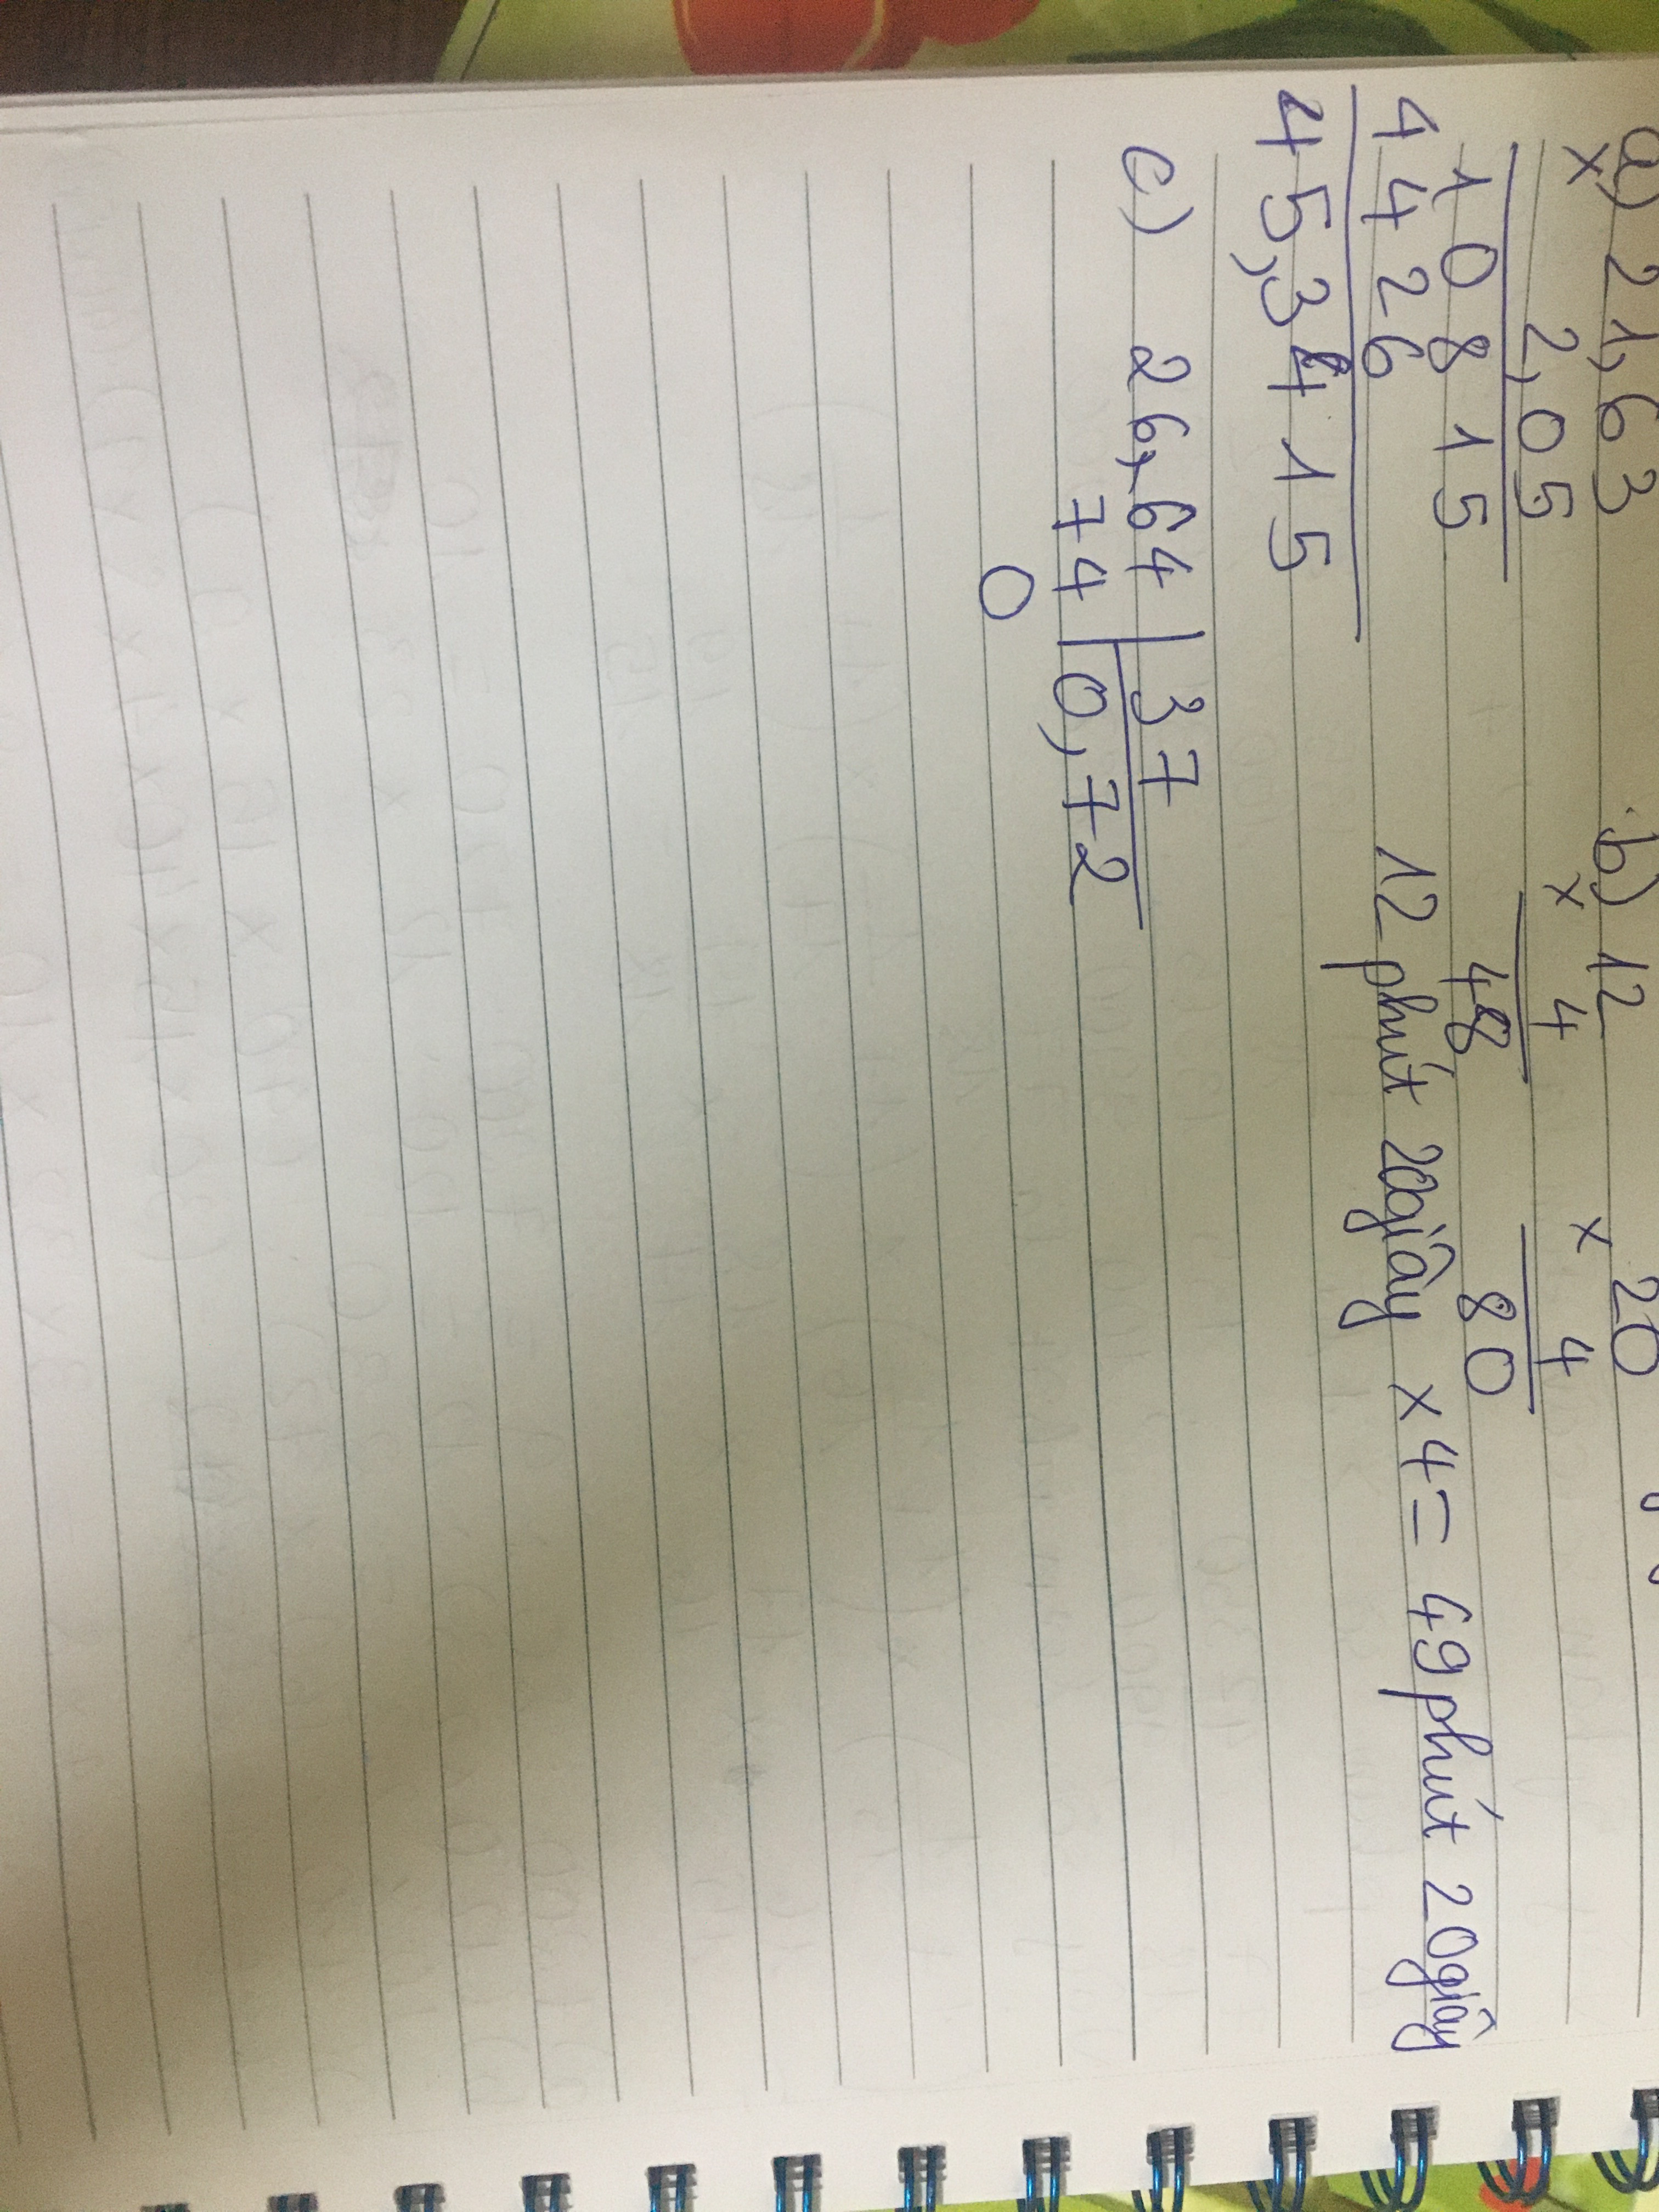 a) 21,63 b) 12 20
x 2,05 x 4 x 4
10815 48 80
4426 12 phút 20giây x 4 = 49 phút 20giây
45,3415
c) 26,64 37
74 0,72
0